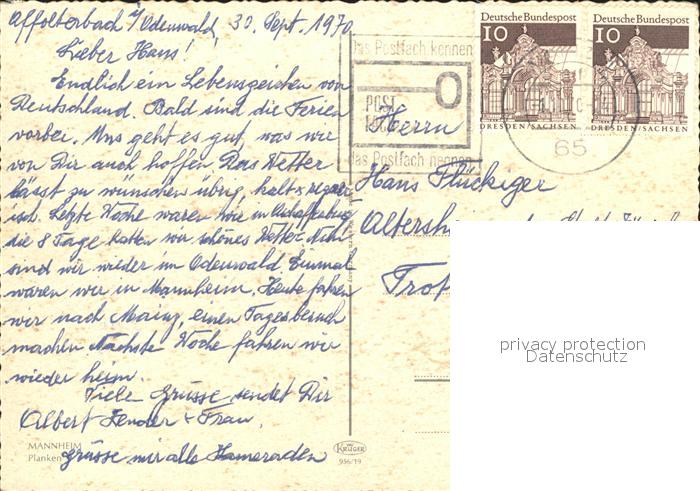 Affolterbach i/Odenwald, 30. Sept. 1970
Lieber Hans!
Endlich ein Lebenszeichen von
Deutschland. Bald sind die Ferien
vorbei. Uns geht es gut, was wir
von Dir auch hoffen. Das Wetter
lässt zu wünschen übrig, kalt &
isch. Letzte Woche waren wir in Aschaffenburg
die 8 Tage hatten wir schönes Wetter. Nun
sind wir wieder im Odenwald. Einmal
waren wir in Mannheim. Heute fahren
wir nach Mainz, einen Tagesbesuch
machen. Nächste Woche fahren wir
wieder heim.
Viele Grüsse sendet Dir
Albert + Frau.
Grüsse mir alle Kameraden
MANNHEIM
Planken
KRÜGER
956/19
das Postfach kennen
POST
das Postfach nennen
Deutsche Bundespost
10
DRESDEN/SACHSEN
Deutsche Bundespost
10
DRESDEN/SACHSEN
65
Herrn
Hans Flückiger
Altersh
Trot
privacy protection
Datenschutz